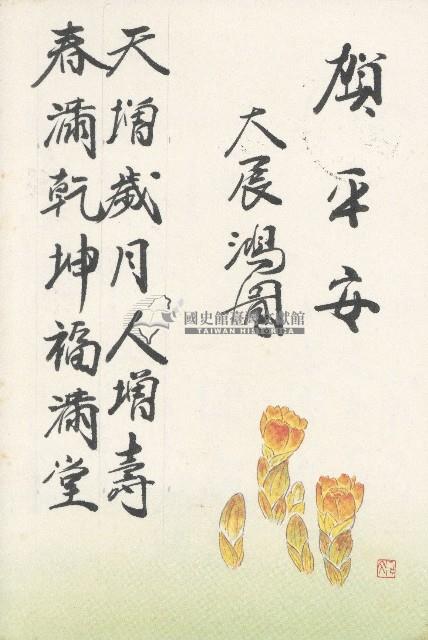 賀平安
大展鴻圖
天增歲月人增壽
春滿乾坤福滿堂
國史館臺灣文獻館
TAIWAN HISTORICA